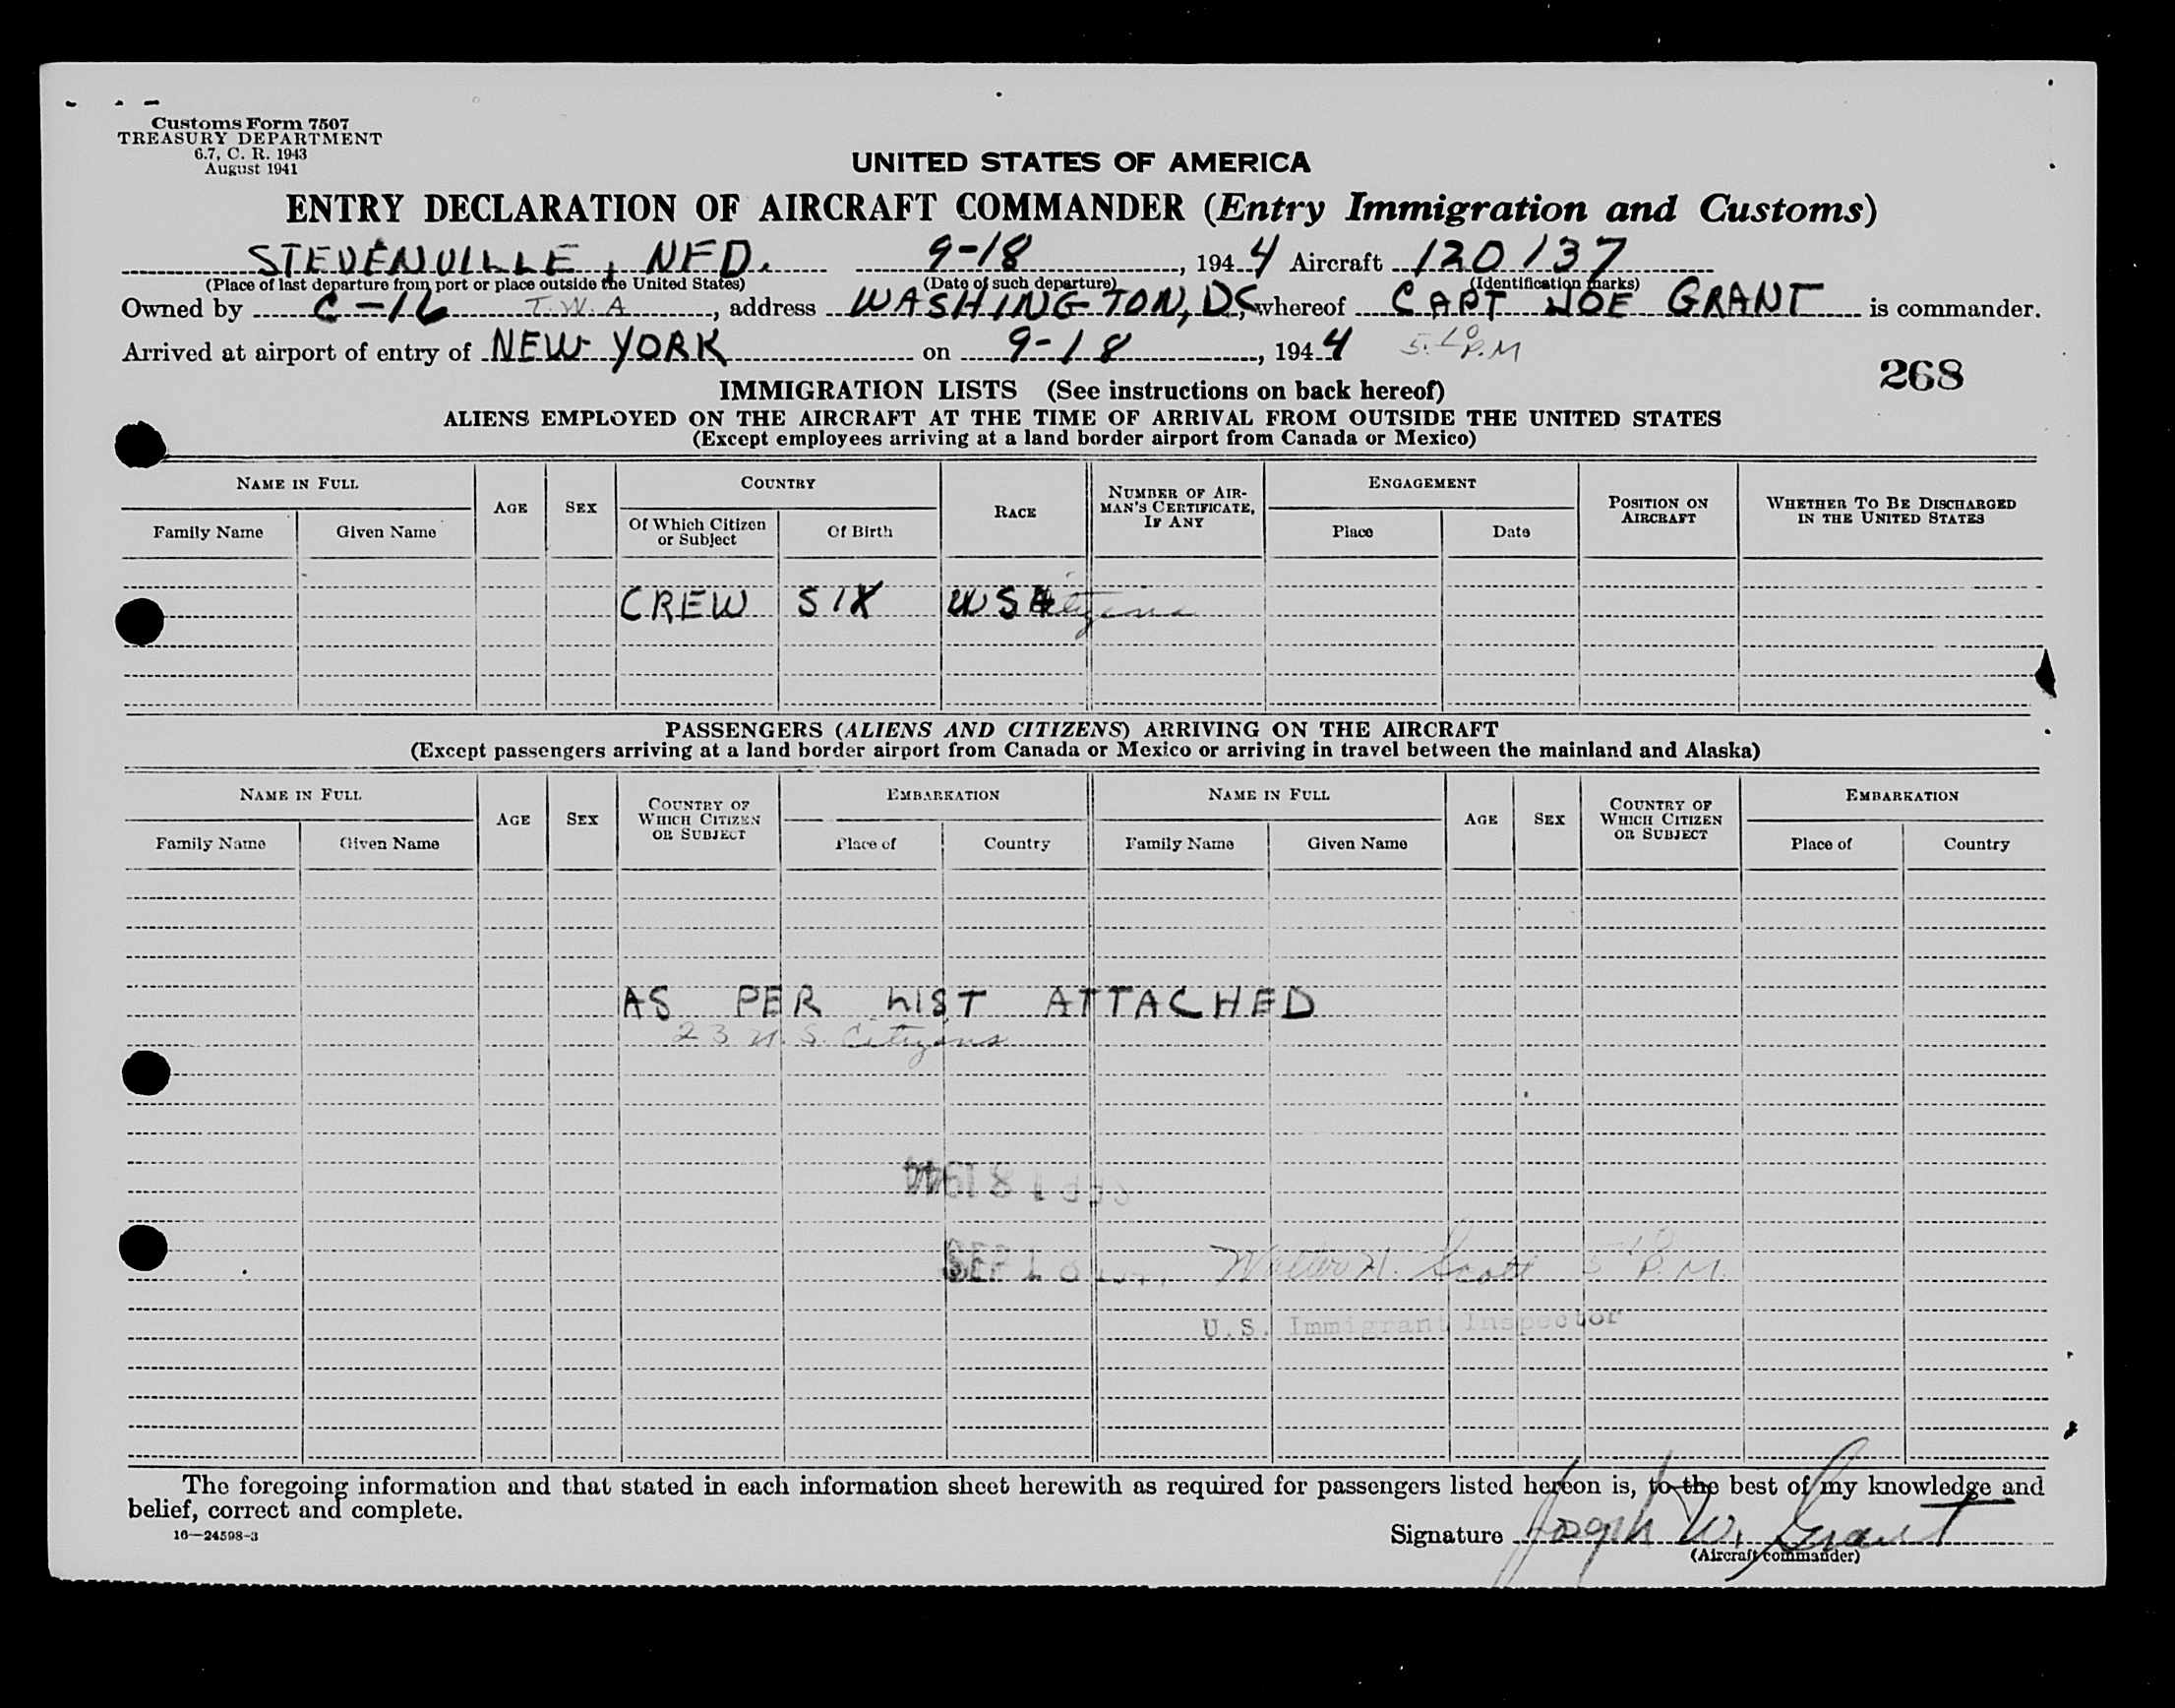 Customs Form 7507
TREASURY DEPARTMENT
6.7, C. R. 1943
August 1941
UNITED STATES OF AMERICA
ENTRY DECLARATION OF AIRCRAFT COMMANDER (Entry Immigration and Customs)
STEVENVILLE, NFD. 9-18, 1944 Aircraft 120137
(Place of last departure from port or place outside the United States) (Date of such departure) (Identification marks)
Owned by C-16 T.W.A, address WASHINGTON, DC, whereof CAPT JOE GRANT is commander.
Arrived at airport of entry of NEW YORK on 9-18, 1944 5:10 P.M
268
IMMIGRATION LISTS (See instructions on back hereof)
ALIENS EMPLOYED ON THE AIRCRAFT AT THE TIME OF ARRIVAL FROM OUTSIDE THE UNITED STATES
(Except employees arriving at a land border airport from Canada or Mexico)
NAME IN FULL AGE SEX COUNTRY RACE NUMBER OF AIRMAN'S CERTIFICATE, IF ANY ENGAGEMENT POSITION ON AIRCRAFT WHETHER TO BE DISCHARGED IN THE UNITED STATES
Family Name Given Name Of Which Citizen or Subject Of Birth Place Date
CREW SIX US Citizens
PASSENGERS (ALIENS AND CITIZENS) ARRIVING ON THE AIRCRAFT
(Except passengers arriving at a land border airport from Canada or Mexico or arriving in travel between the mainland and Alaska)
NAME IN FULL AGE SEX COUNTRY OF WHICH CITIZEN OR SUBJECT EMBARKATION NAME IN FULL AGE SEX COUNTRY OF WHICH CITIZEN OR SUBJECT EMBARKATION
Family Name Given Name Place of Country Family Name Given Name Place of Country
AS PER LIST ATTACHED
23 U.S. Citizens
SEP 18 Walter H. Scott 5:10 P.M.
U.S. Immigrant Inspector
The foregoing information and that stated in each information sheet herewith as required for passengers listed hereon is, to the best of my knowledge and
belief, correct and complete.
16—24598-3
Signature Joseph W. Grant
(Aircraft commander)